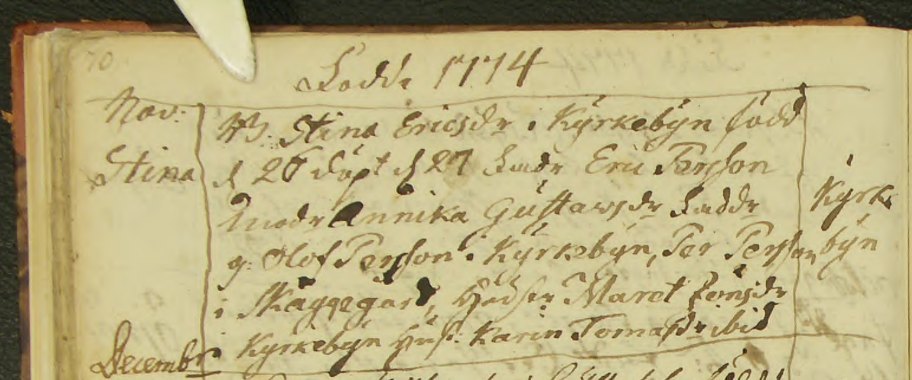 70
Födde 1774
Nov:
Stina
W. Stina Ericsdr i Kÿrkebÿn född
d 26 döpt d 27 Fadr Eric Persson
Modr Annika Gustavsdr Faddr
g. Olof Persson i Kÿrkebÿn, Per Persson
i Skäggegård, Hustr Maret Jönsdr
Kÿrkebÿn Hust. Karin Tomasdr ibid
Kÿrke
bÿn
Decembr